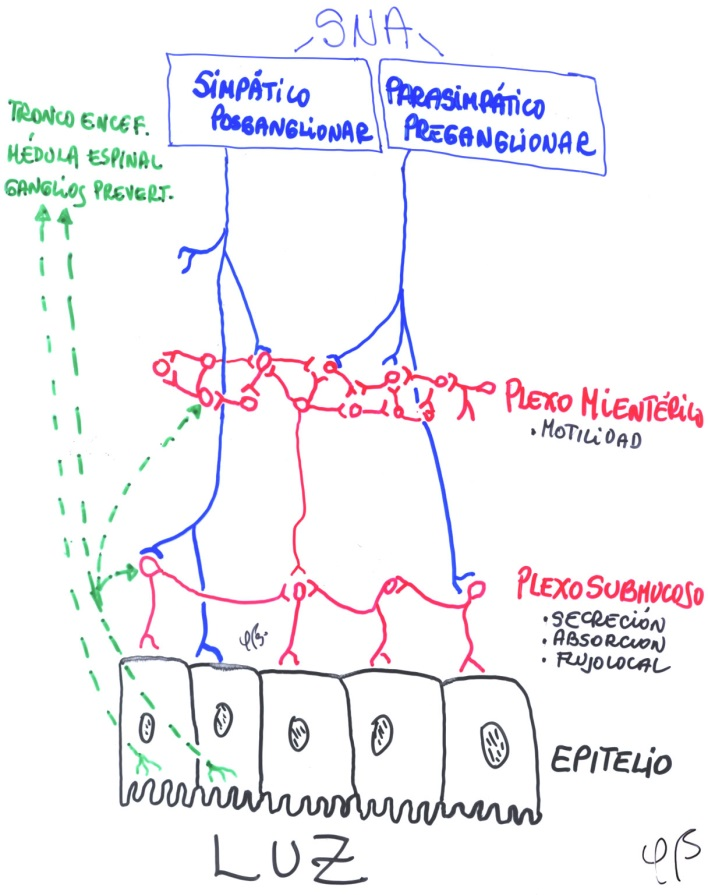 SNA
SIMPÁTICO
POSGANGLIONAR
PARASIMPÁTICO
PREGANGLIONAR
TRONCO ENCEF.
MÉDULA ESPINAL
GANGLIOS PREVERT.
PLEXO MIENTÉRICO
. MOTILIDAD
PLEXO SUBMUCOSO
. SECRECIÓN
. ABSORCION
. FLUJO LOCAL
EPITELIO
LUZ